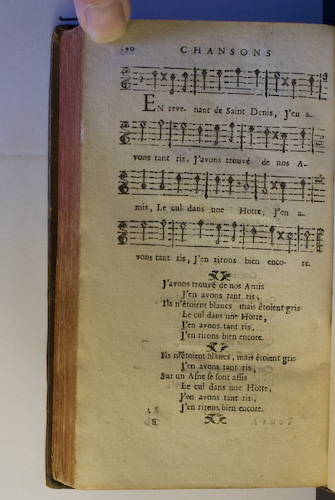 90 CHANSONS
EN reve- nant de Saint Denis, J'en a-
vons tant ris, J'avons trouvé de nos A-
mis, Le cul dans une Hotte, J'en a-
vons tant ris, J'en rirons bien enco- re.
J'avons trouvé de nos Amis
J'en avons tant ris,
Ils n'étoient blancs, mais étoient gris
Le cul dans une Hotte,
J'en avons tant ris,
J'en rirons bien encore.
Ils n'étoient blancs, mais étoient gris
J'en avons tant ris,
Sur un Asne se sont assis
Le cul dans une Hotte,
J'en avons tant ris,
J'en rirons bien encore.